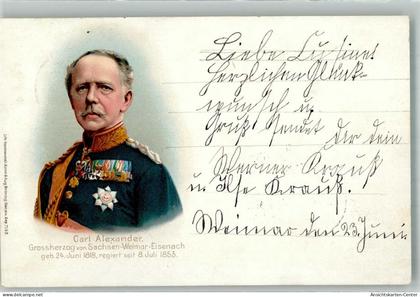 Liebe Cousine!
Herzlichen Glück-
wunsch u.
Gruß sendet Dir dein
Werner Krauß
u. Ilse Krauß.
Weimar den 23. Juni
Carl Alexander.
Grossherzog von Sachsen-Weimar-Eisenach
geb. 24. Juni 1818, regiert seit 8. Juli 1853.